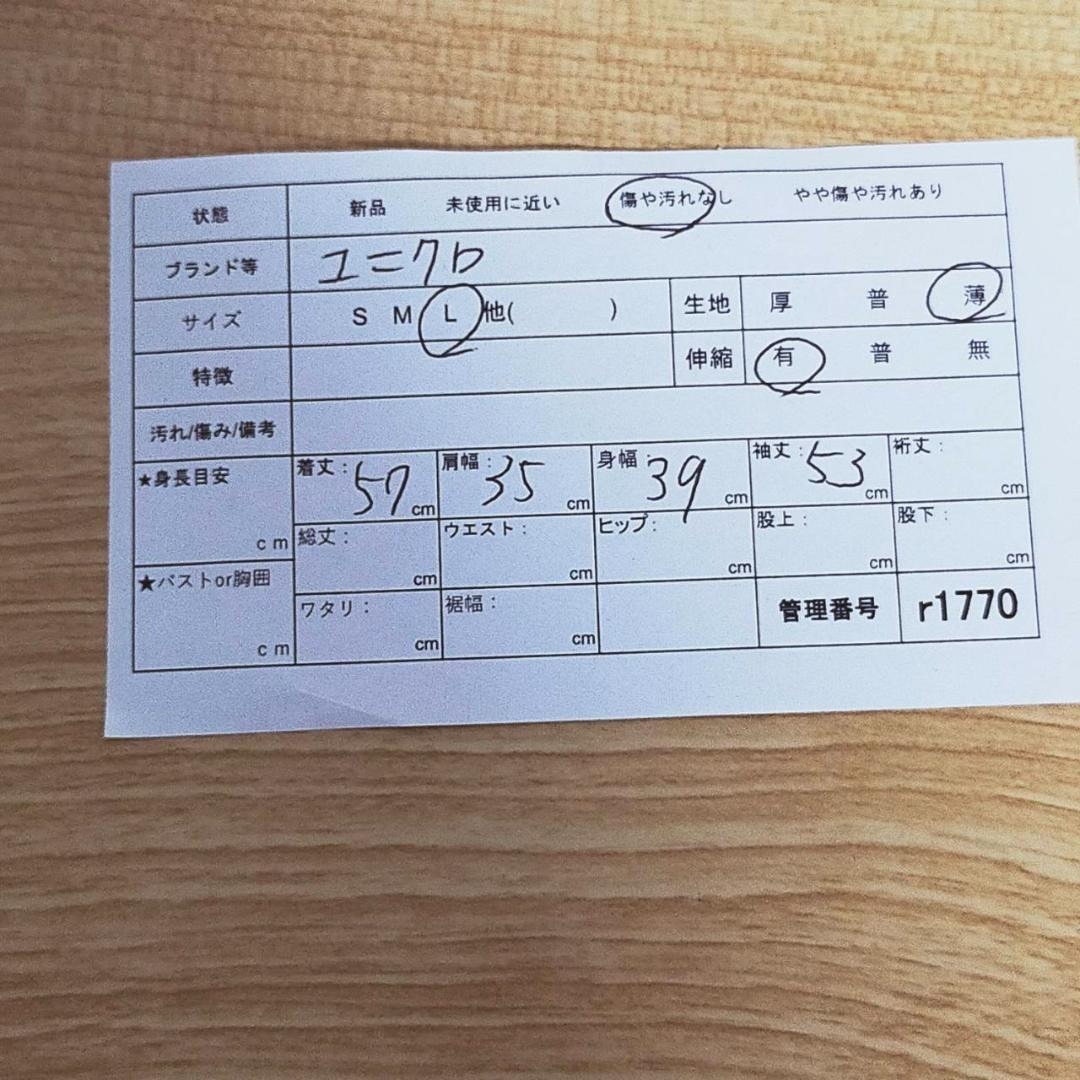 状態 新品 未使用に近い 傷や汚れなし やや傷や汚れあり
ブランド等 ユニクロ
サイズ S M L 他( ) 生地 厚 普 薄
特徴 伸縮 有 普 無
汚れ/傷み/備考
★身長目安 cm
着丈: 57 cm 肩幅: 35 cm 身幅: 39 cm 袖丈: 53 cm 裄丈: cm
総丈: cm ウエスト: cm ヒップ: cm 股上: cm 股下: cm
★バストor胸囲 cm
ワタリ: cm 裾幅: cm 管理番号 r1770